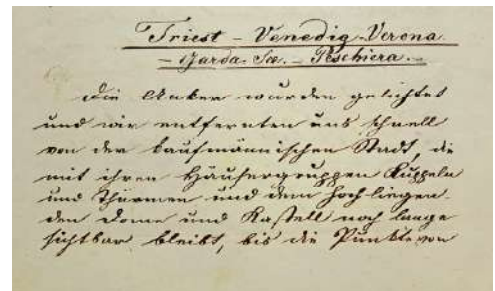 Triest - Venedig-Verona
- Garda-See. - Peschiera. -
Die Anker wurden gelichtet
und wir entfernten uns schnell
von der kaufmännischen Stadt, die
mit ihren Häusergruppen Kuppeln
und Thürmen und dem hochliegen-
den Dome und Kastell noch lange
sichtbar bleibt, bis die Punkte von